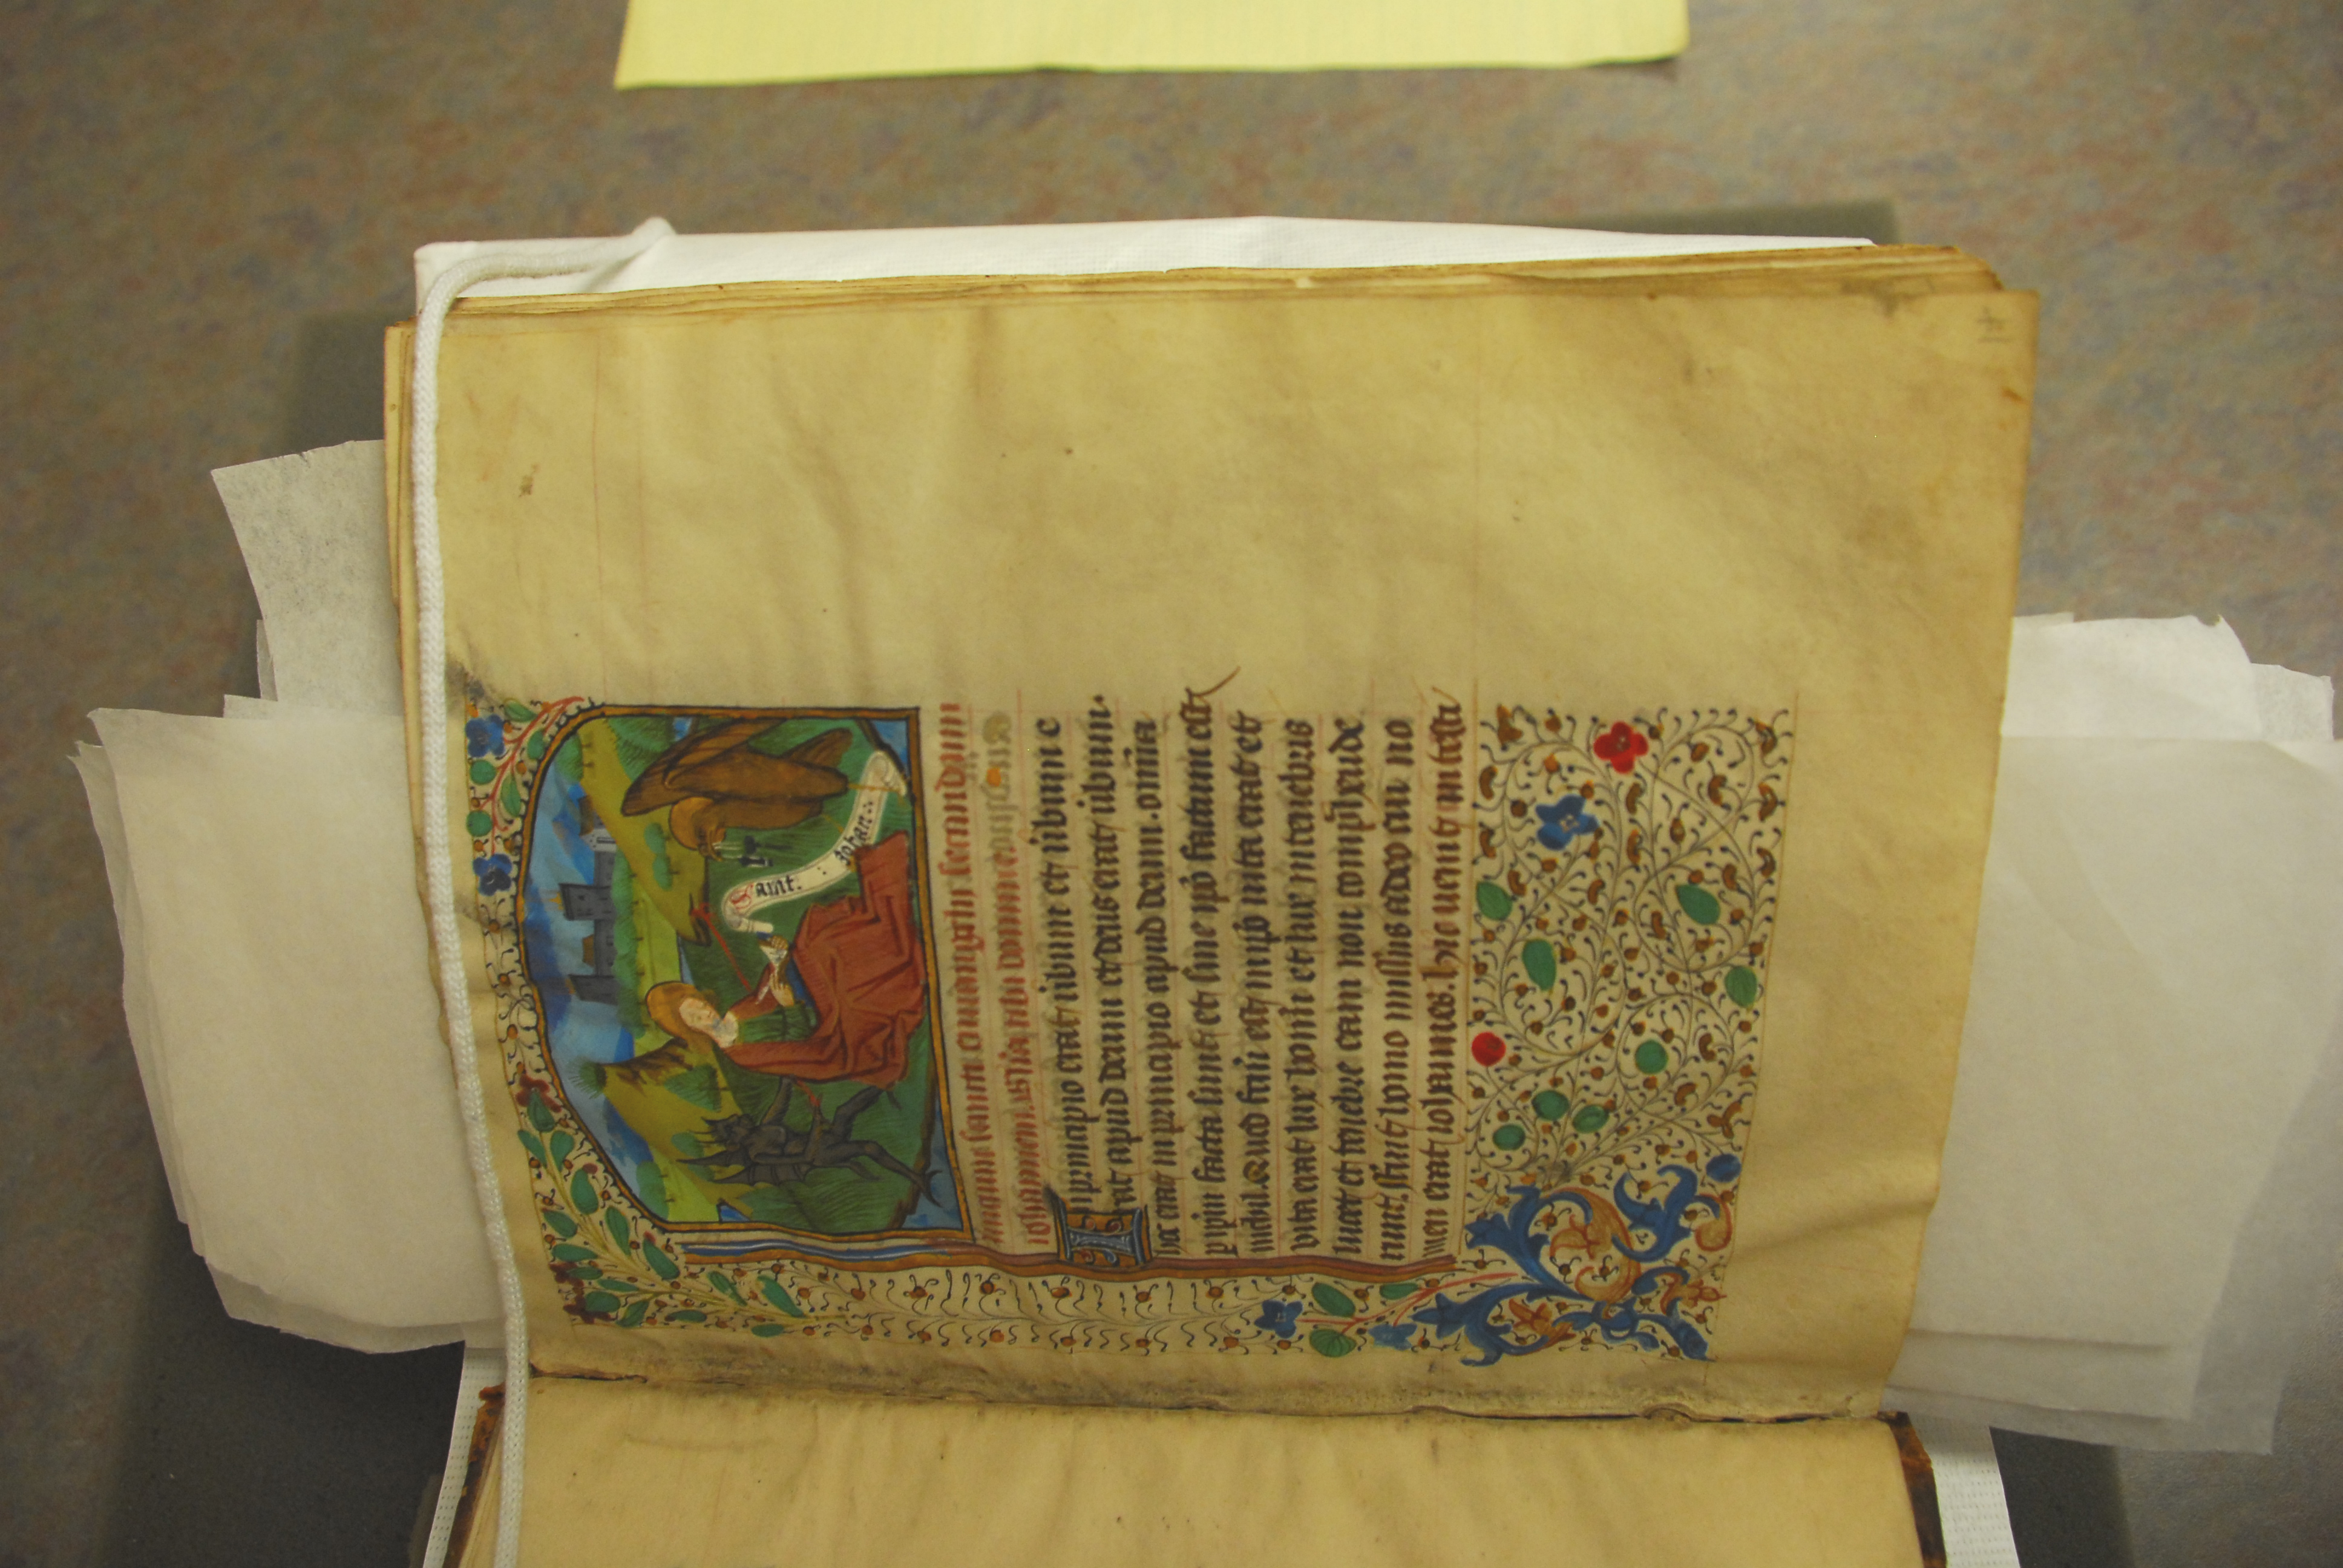 Saint. : Johan.:
Inicium sancti euangelij secundum
iohannem. gloria tibi domine
In principio erat uerbum et uerbum e
rat apud deum et deus erat uerbum.
hoc erat in principio apud deum. omnia
p ipm facta sunt et sine ipo factum est
nichil. Quod factu est in ipo uita erat et
vita erat lux homi et lux in tenebris
lucet et tenebre eam non comprehende
runt. fuit homo missus a deo cui no
men erat iohannes. hic uenit in testi